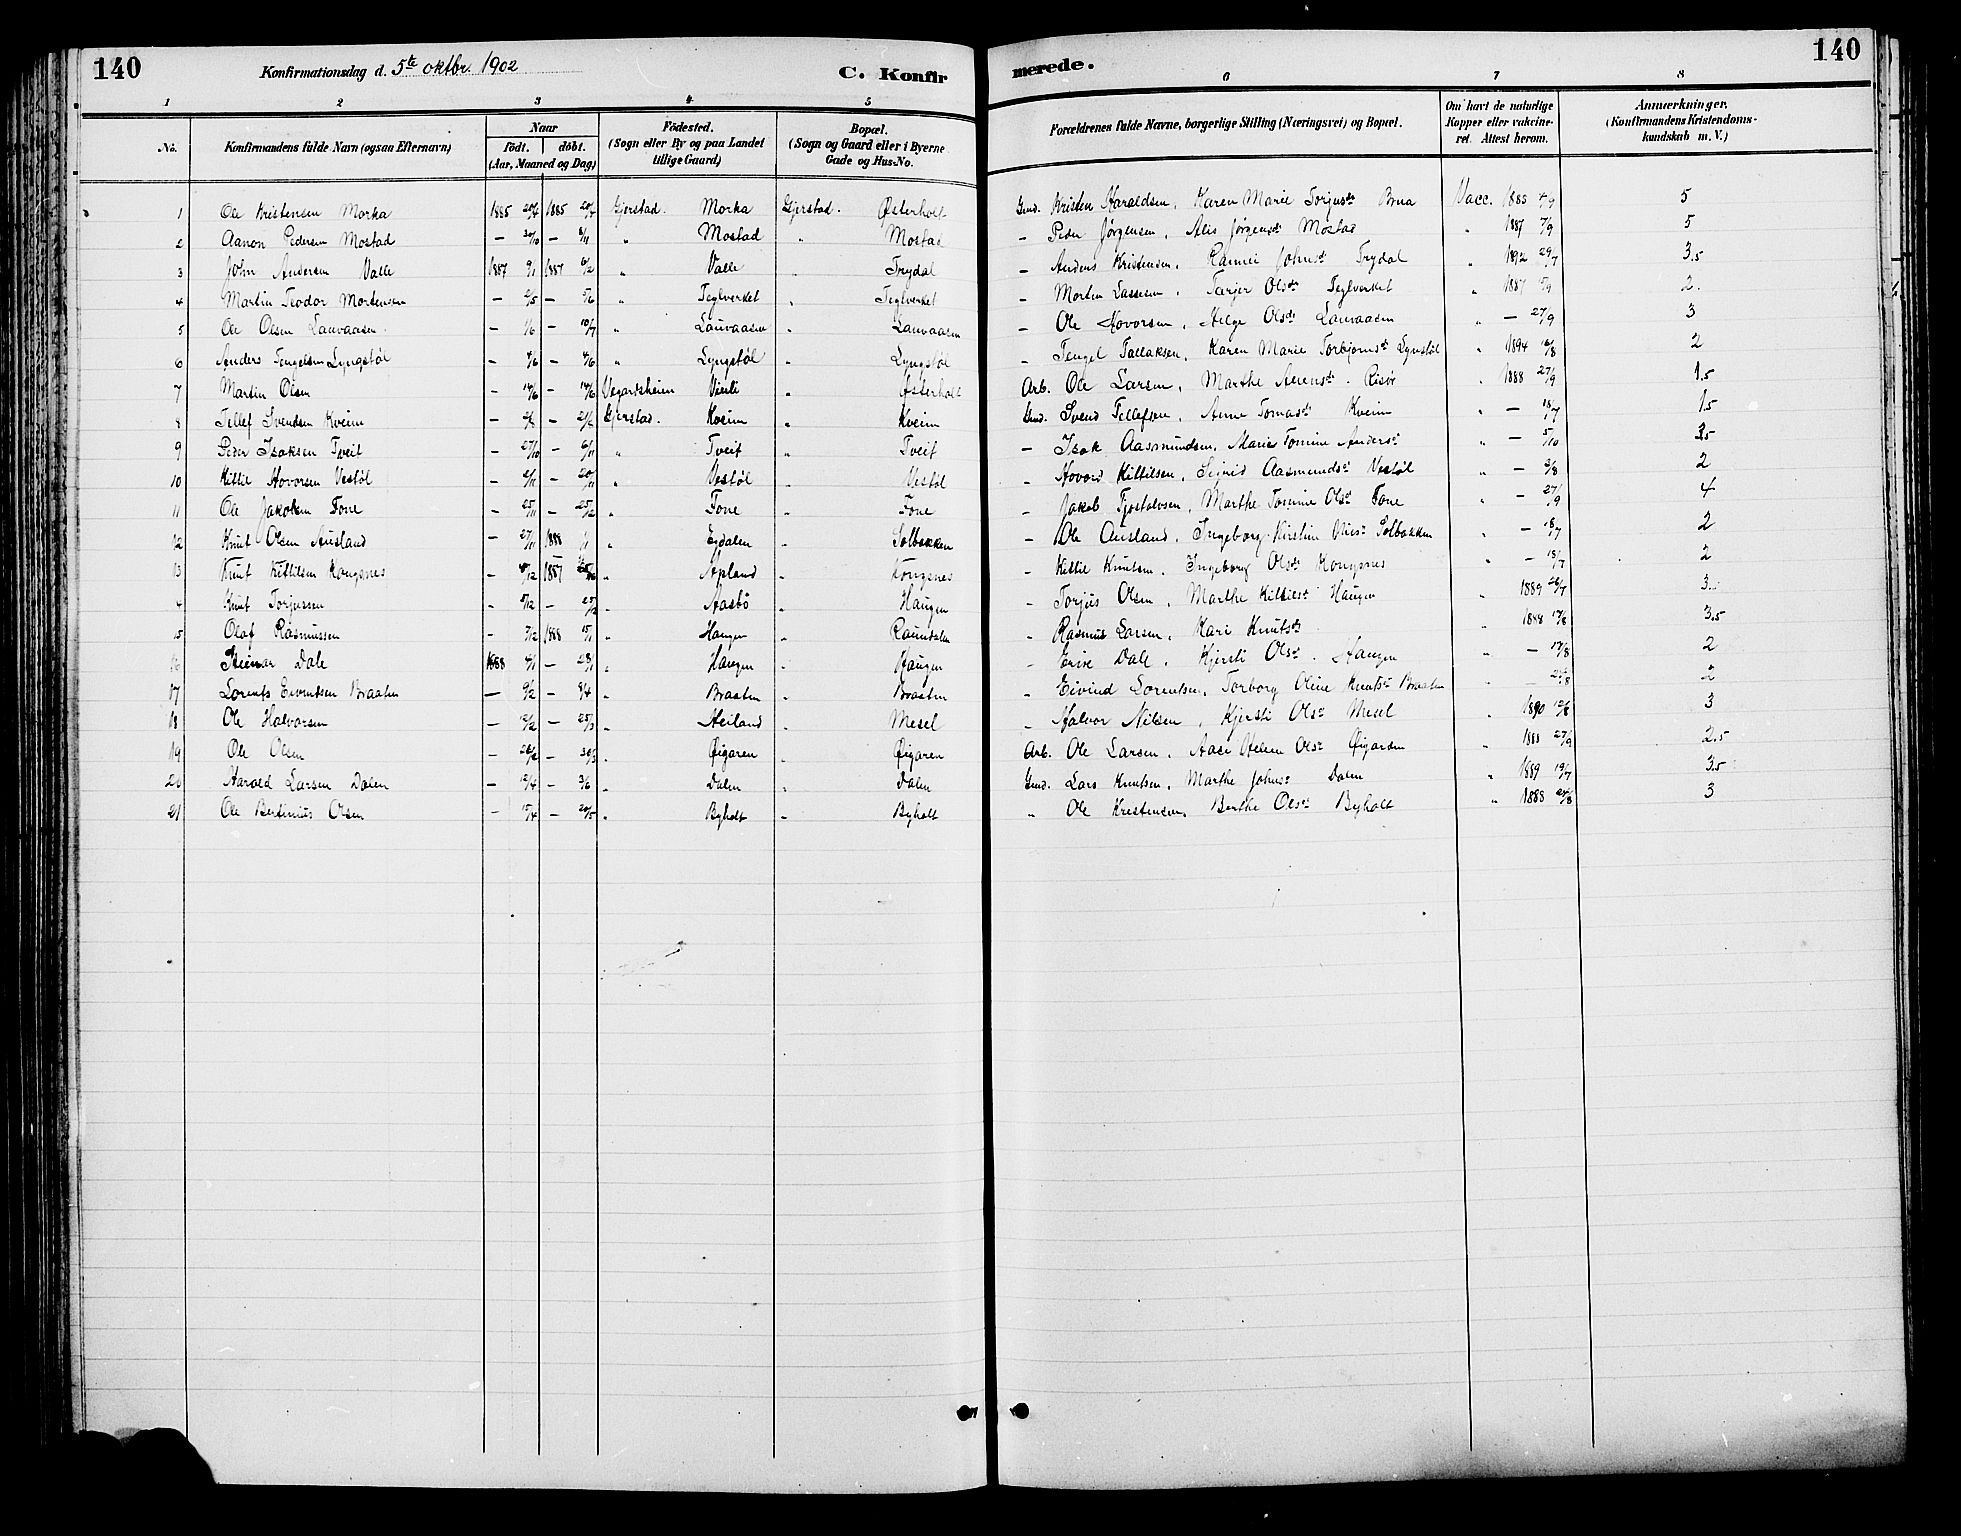 140
Konfirmationsdag d. 5te oktbr. 1902
C. Konfir
merede.
140
1 2 3 4 5 6 7 8
No. Konfirmandens fulde Navn (ogsaa Efternavn) Naar födt. döbt. (Aar, Maaned og Dag) Födested. (Sogn eller By og paa Landet tillige Gaard) Bopæl. (Sogn og Gaard eller i Byerne Gade og Hus-No. Forældrenes fulde Navne, borgerlige Stilling (Næringsvei) og Bopæl. Om havt de naturlige Kopper eller vakcineret. Attest herom. Anmærkninger, (Konfirmandens Kristendomskundskab m. V.)
1 Ole Kristensen Morka 1885 20/4 1885 Gjerstad. Morka Gjerstad. Østerholt Gmd. Kristen Haraldsen, Karen Marie Torjusdr Brua Vacc. 1885 4/9 5
2 Aanon Pedersen Mostad — 30/10 — 8/11 " Mostad " Mostad — Peder Jørgensen, Alis Jørgensdr Mostad " 1887 7/9 5
3 John Andersen Valle 1887 9/1 1887 6/2 " Valle " Trydal — Anders Kristensen, Johnsdr Trydal " 1892 29/7 3.5
4 Martin Teodor Mortensen — 2/5 — 5/6 " Teglverket " Teglverket — Morten Lassesen, Tarjer Olsdr Teglverket " 1887 2.
5 Ole Olsen Lauvaasen — 1/6 — 10/7 " Lauvaasen " Lauvaasen — Ole Hovorsen, Helge Olsdr Lauvaasen " — 27/9 3
6 Anders Tengelsen Lyngstöl — 4/6 — 4/6 " Lyngstöl " Lyngstöl — Tengel Tallaksen, Karen Marie Torbjørnsdr Lynstöl " 1894 16/8 2
7 Martin Olsen — 14/6 — 14/6 Vegartsheien Vierli " Østerholt Arb. Ole Larsen, Marthe . Risör " 1888 27/9 1.5
8 Tellef Svendsen Kveim — — Gjerstad. Kveim " Kveim Gmd. Svend Tellefsen, Anne Tomasdr Kveim " — 18/7 1.5
9 Peder Isaksen Tveit — 27/10 — 6/11 " Tveit " Tveit — Isak Aasmundsen, Marie Tomine Andersdr " — 5/10 3.5
10 Kittil Hovorsen Vestöl — 2/11 — 20/11 " Vestöl " Vestöl — Hovord Kittilsen, Sigrid Aasmundsdr Vestöl " — 2
11 Ole Jakobsen Fone — 25/11 — 25/12 " Fone " Fone — Jakob Tjostolvsen, Marthe Tomine Olsdr Fone " — 27/9 4
12 Knut Olsen Ausland — 27/11 1888 1/1 " Egdalen " Solbakken — Ole Ausland, Ingeborg Kirstine Solbakken " — 18/7 2
13 Knut Kittilsen Kongsnes — 1887 " Apland " Kongsnes — Kittil Knutsen, Ingeborg Olsdr Kongsnes " — 18/7 2
4 Knut Torjussen — 5/12 — 25/12 " Aasbö " Haugen — Torjus Olsen, Marthe Kittilsdr Haugen " 1889 26/7 3
15 Olaf Rasmussen — 7/12 1888 15/1 " Haugen " Raundalen — Rasmus Larsen, Kari Knutsdr " 1888 17/8 3.5
16 Steinar Dale 1888 4/1 — 28/1 " Haugen " Haugen — Dale, Kjersti Olsdr . Haugen " — 17/8 2
17 Lorents Eivindsen Braaten — 9/2 — 8/4 " Braaten " Braaten — Eivind Lorentsen, Torborg Oline Knutsdr Braaten " — 2
18 Ole Halvorsen — 12/2 — 25/3 " Heiland " Mesel — Halvor Nilsen, Kjersti Olsdr Mesel " 1890 12/8 3
19 Ole Olsen — 26/2 — 30/3 " Øigaren " Øigaren Arb. Ole Larsen, Aase Helene Olsdr Øigarden " 1888 27/9 2.5
20 Harald Larsen Dalen — 12/4 — 3/6 " Dalen " Dalen Gmd. Lars Knutsen, Marthe Johnsdr Dalen " 1889 19/7 3.5
21 Ole Bertinius Olsen — 15/4 — 20/5 " Byholt — Byholt " Ole Kristensen, Berthe Olsdr Byholt " 1888 3